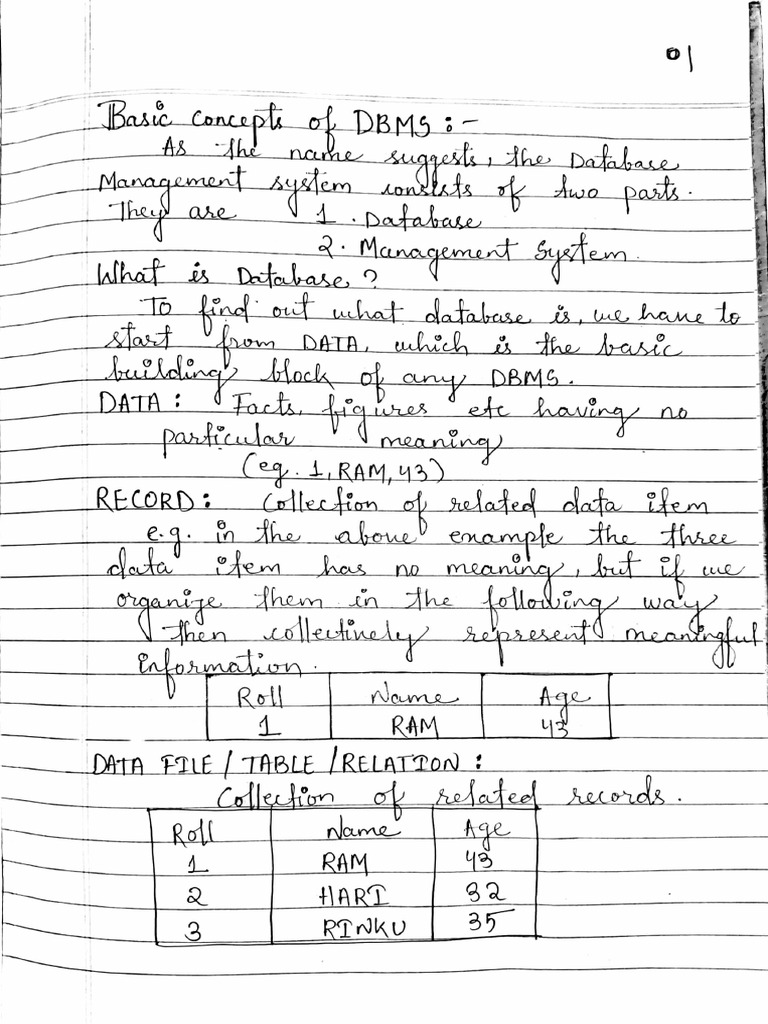 01
Basic concepts of DBMS :-
As the name suggests, the Database
Management system consists of two parts.
They are 1. Database
2. Management System.
What is Database?
To find out what database is, we have to
start from DATA, which is the basic
building block of any DBMS.
DATA : Facts, figures etc having no
particular meaning
(eg. 1, RAM, 43)
RECORD : Collection of related data item
e.g. in the above example the three
data item has no meaning, but if we
organize them in the following way
then collectively represent meaningful
information.
Roll Name Age
1 RAM 43
DATA FILE / TABLE / RELATION :
Collection of related records.
Roll Name Age
1 RAM 43
2 HARI 32
3 RINKU 35